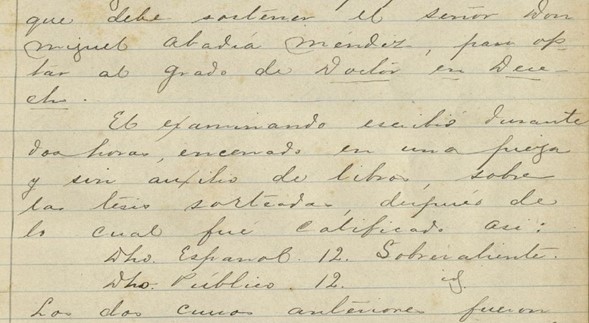 que debe sostener el señor Don
Miguel Abadía Méndez, para op-
tar al grado de Doctor en Dere-
cho.
El examinando escribió durante
dos horas, encerrado en una pieza
y sin auxilio de libros, sobre
las tésis sorteadas, después de
lo cual fue calificado así:
Dho. Español. 12. Sobresaliente.
Dho. Público. 12. id.
Los dos cursos anteriores fueron